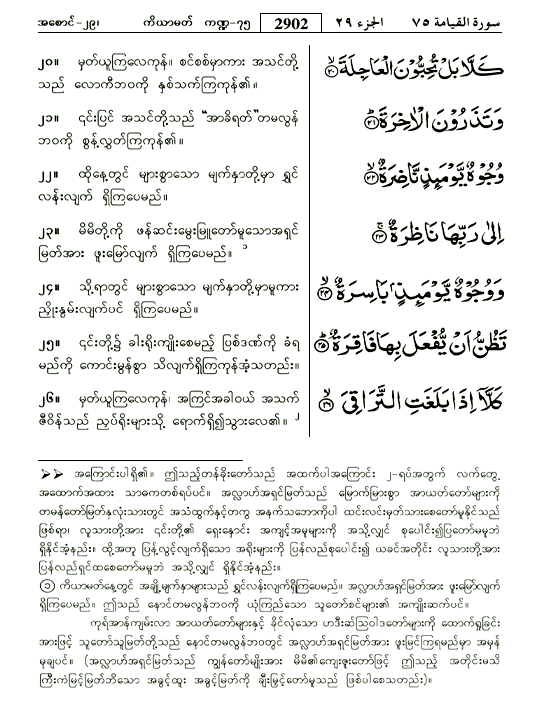 အစောင်-၂၉၊ ကိယာမတ် ကဏ္ဍ-၇၅ 2902 الجزء ٢٩ سورة القيامة ٧٥
၂၀။ မှတ်ယူကြလေကုန်။ စင်စစ်မှာကား အသင်တို့
သည် လောကီဘဝကို နှစ်သက်ကြကုန်၏။
كَلَّا بَلْ تُحِبُّونَ الْعَاجِلَةَ ﴿٢٠﴾
၂၁။ ၎င်းပြင် အသင်တို့သည် “အာခိရတ်”တမလွန်
ဘဝကို စွန့်လွှတ်ကြကုန်၏။
وَتَذَرُونَ الْآخِرَةَ ﴿٢١﴾
၂၂။ ထိုနေ့တွင် များစွာသော မျက်နှာတို့မှာ ရွှင်
လန်းလျက် ရှိကြပေမည်။
وُجُوهٌ يَّوْمَئِذٍ نَّاضِرَةٌ ﴿٢٢﴾
၂၃။ မိမိတို့ကို ဖန်ဆင်းမွေးမြူတော်မူသောအရှင်
မြတ်အား ဖူးမြော်လျက် ရှိကြပေမည်။ ၁
إِلَىٰ رَبِّهَا نَاظِرَةٌ ﴿٢٣﴾
၂၄။ သို့ရာတွင် များစွာသော မျက်နှာတို့မှာမူကား
ညှိုးနွမ်းလျက်ပင် ရှိကြပေမည်။
وَوُجُوهٌ يَّوْمَئِذٍ بَاسِرَةٌ ﴿٢٤﴾
၂၅။ ၎င်းတို့၌ ခါးရိုးကျိုးစေမည့် ပြစ်ဒဏ်ကို ခံရ
မည်ကို ကောင်းမွန်စွာ သိလျက်ရှိကြကုန်အံ့သတည်း။
تَظُنُّ أَنْ يُّفْعَلَ بِهَا فَاقِرَةٌ ﴿٢٥﴾
၂၆။ မှတ်ယူကြလေကုန်၊ အကြင်အခါဝယ် အသက်
ဇီဝိန်သည် ညှပ်ရိုးများသို့ ရောက်ရှိ၍သွားလေ၏။ ၂
كَلَّا إِذَا بَلَغَتِ التَّرَاقِيَ ﴿٢٦﴾
➢➢ အကြောင်းပါရှိ၏။ ဤသည့်တန်ခိုးတော်သည် အထက်ပါအကြောင်း ၂-ရပ်အတွက် လက်တွေ့
အထောက်အထား သာဓကတစ်ရပ်ပင်။ အလ္လာဟ်အရှင်မြတ်သည် မြောက်မြားစွာ အာယတ်တော်များကို
တမန်တော်မြတ်နှလုံးသားတွင် အသံထွက်နှင့်တကွ အနက်သဘောကိုပါ ထင်းလင်းမှတ်သားစေတော်မူနိုင်သည်
ဖြစ်ရာ၊ လူသားတို့အား ၎င်းတို့၏ ရှေးနှောင်း အကျင့်အမူများကို အသို့လျှင် စုပေါင်း၍ပြတော်မမူဘဲ
ရှိနိုင်အံ့နည်း။ ထို့အတူ ပြန့်လွင့်လျက်ရှိသော အရိုးများကို ပြန်လည်စုပေါင်း၍ ယခင်အတိုင်း လူသားတို့အား
ပြန်လည်ရှင်ထစေတော်မမူဘဲ အသို့လျှင် ရှိနိုင်အံ့နည်း။
(၁) ကိယာမတ်နေ့တွင် အချို့မျက်နှာများသည် ရွှင်လန်းလျက်ရှိကြပေမည်။ အလ္လာဟ်အရှင်မြတ်အား ဖူးမြော်လျက်
ရှိကြပေမည်။ ဤသည် နောင်တမလွန်ဘဝကို ယုံကြည်သော သူတော်စင်များ၏ အကျိုးဆက်ပင်။
ကုရ်အာန်ကျမ်းလာ အာယတ်တော်များနှင့် ခိုင်လုံသော ဟဒီးဆ်ဩဝါဒတော်များကို ထောက်ရှုခြင်း
အားဖြင့် သူတော်သူမြတ်တို့သည် နောင်တမလွန်ဘဝတွင် အလ္လာဟ်အရှင်မြတ်အား ဖူးမြင်ကြရမည်မှာ အမှန်
မုချပင်။ (အလ္လာဟ်အရှင်မြတ်သည် ကျွန်တော်မျိုးအား မိမိ၏ကျေးဇူးတော်ဖြင့် ဤသည့် အတိုင်းမသိ
ကြီးကဲမြင့်မြတ်ဘိသော အခွင့်ထူး အခွင့်မြတ်ကို ချီးမြှင့်တော်မူသည် ဖြစ်ပါစေသတည်း)။